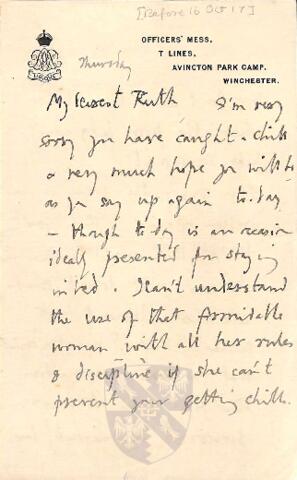 [Before 16 Oct 17]
OFFICERS' MESS,
T LINES,
AVINGTON PARK CAMP.
WINCHESTER.
Thursday
My dearest Ruth I'm very
sorry you have caught a chill
& very much hope you will be
as you say up again to-day
– though to day is an occasion
ideally presented for staying
in bed. I can't understand
the use of that formidable
woman with all her rules
& discipline if she can't
prevent your getting chills.